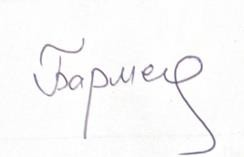 Бармец